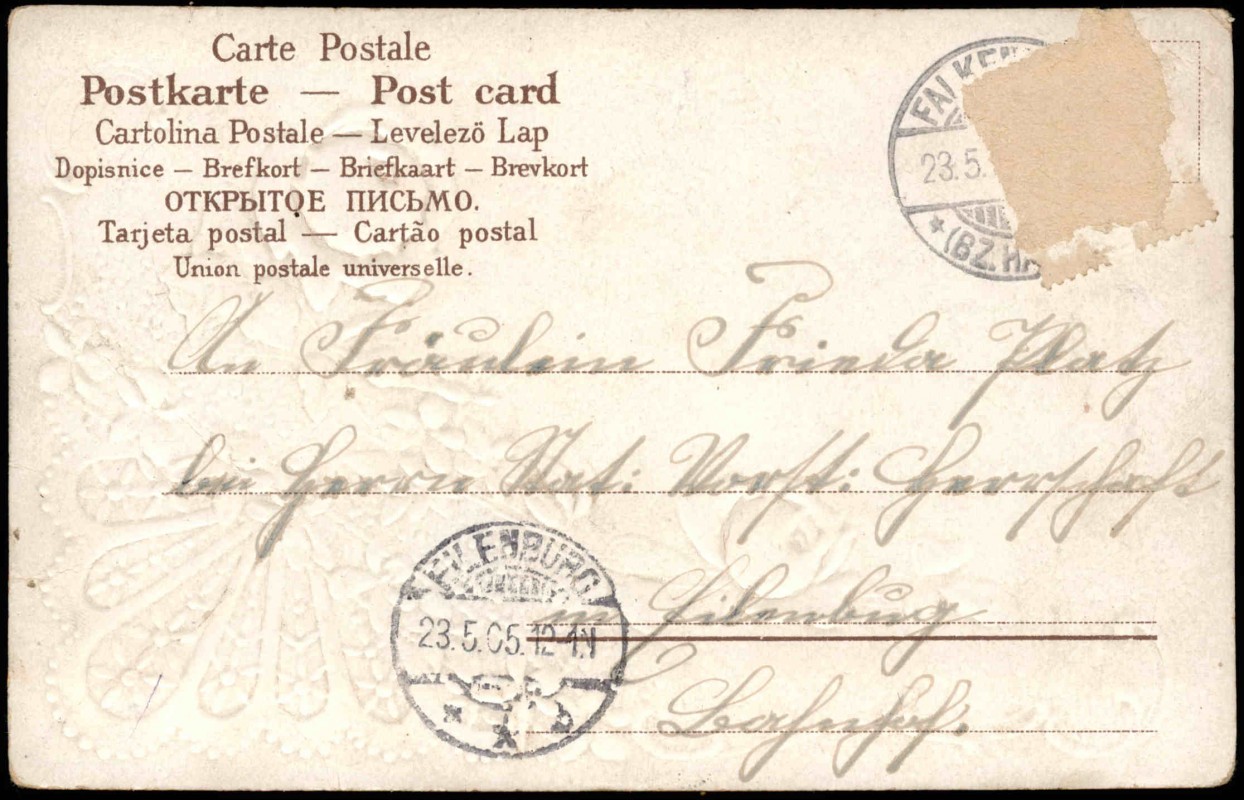 Carte Postale
Postkarte — Post card
Cartolina Postale — Levelezö Lap
Dopisnice — Brefkort — Briefkaart — Brevkort
ОТКРЫТОЕ ПИСЬМО.
Tarjeta postal — Cartão postal
Union postale universelle.
FALKEN
23.5.
* (BZ. HA
An Fräulein Frieda Platz
bei Herrn Stati Vorst: Herrschaft
in Eilenburg
Bahnhof.
EILENBURG
23.5.05.12-1N
* b